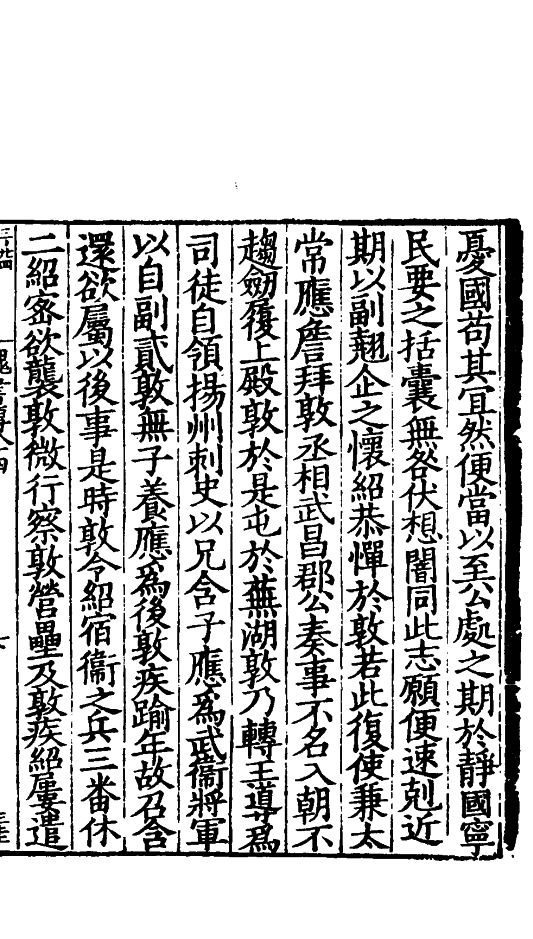 憂國苟其宜然便當以至公處之期於靜國寧
民要之括囊無咎伏想闇同此志願便速剋近
期以副翹企之懷紹恭憚於敦若此復使兼太
常應詹拜敦丞相武昌郡公奏事不名入朝不
趨劒履上殿敦於是屯於蕪湖敦乃轉王導爲
司徒自領揚州刺史以兄含子應爲武衞將軍
以自副貳敦無子養應爲後敦疾踰年故召含
還欲屬以後事是時敦令紹宿衞之兵三番休
二紹密欲襲敦微行察敦營壘及敦疾紹屢遣